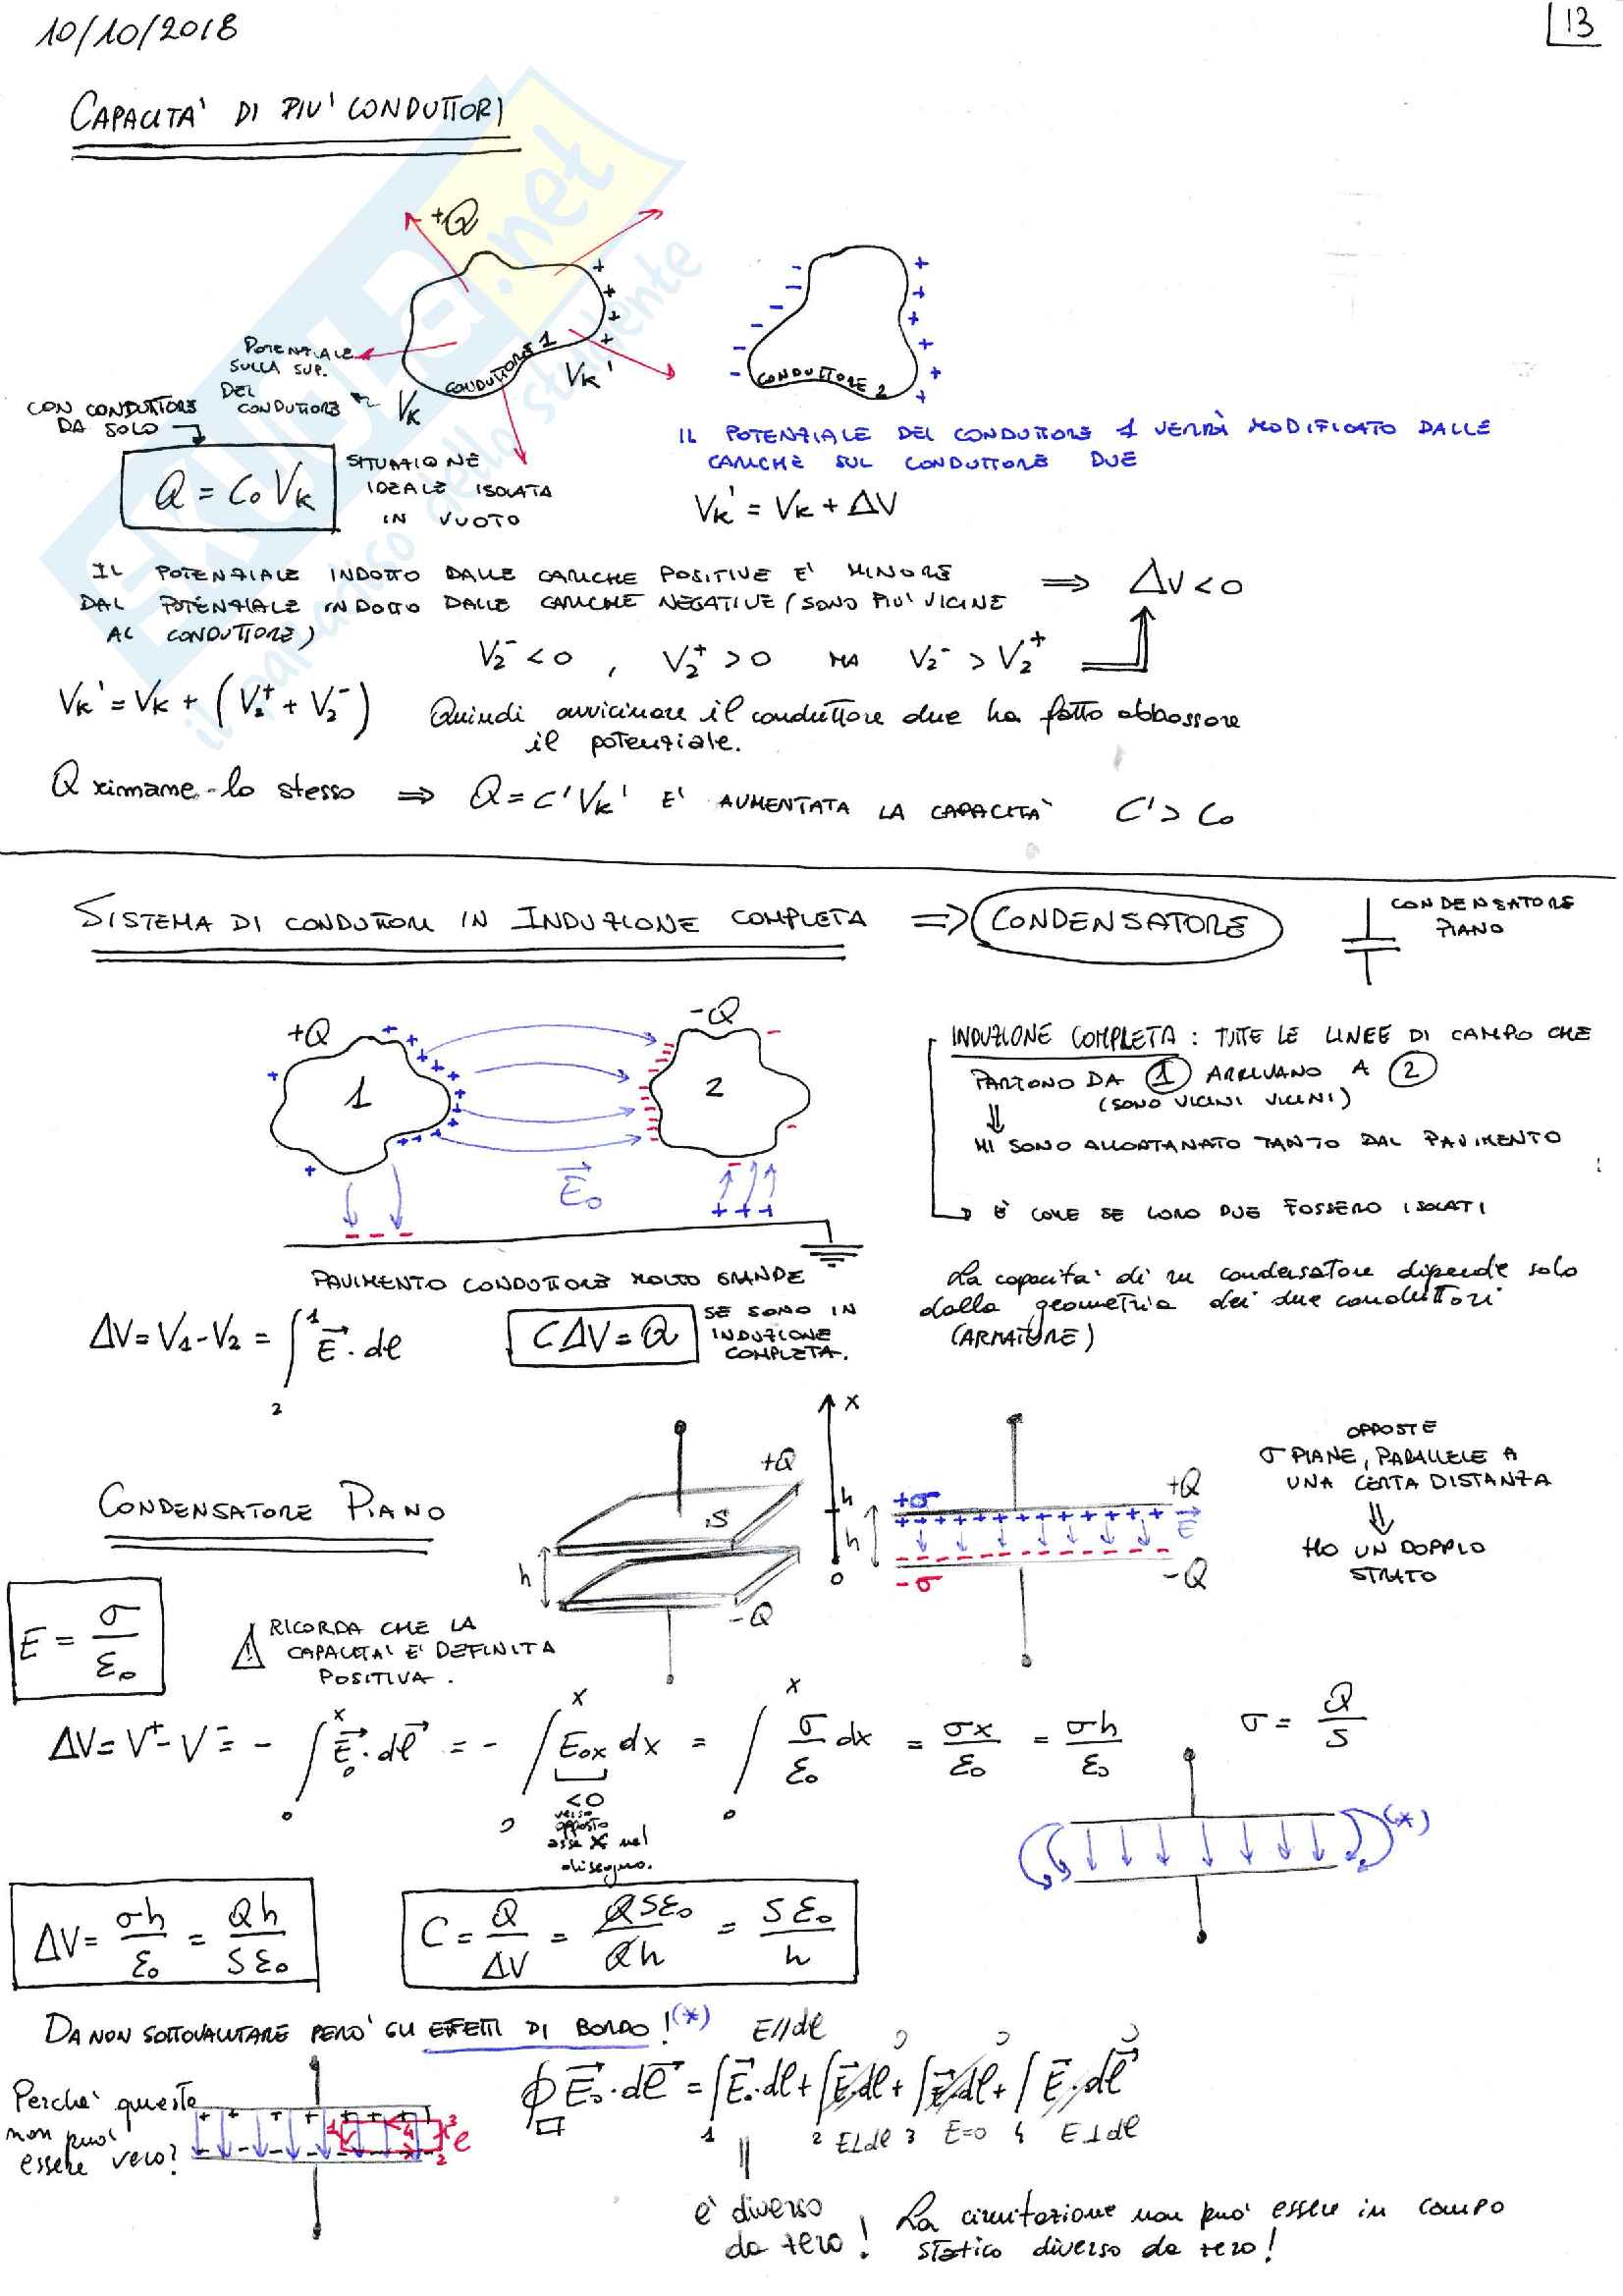 10/10/2018
13
CAPACITA' DI PIU' CONDUTTORI
+Q
POTENZIALE
SULLA SUP.
DEL
CONDUTTORE
VK
CONDUTTORE 1
VK'
CONDUTTORE 2
CON CONDUTTORE
DA SOLO
Q = C0 VK
SITUAZIONE
IDEALE ISOLATA
IN VUOTO
IL POTENZIALE DEL CONDUTTORE 1 VERRÀ MODIFICATO DALLE
CARICHE SUL CONDUTTORE DUE
VK' = VK + ΔV
IL POTENZIALE INDOTTO DALLE CARICHE POSITIVE E' MINORE
DAL POTENZIALE INDOTTO DALLE CARICHE NEGATIVE (SONO PIU' VICINE
AL CONDUTTORE)
⇒ ΔV < 0
V2⁻ < 0 , V2⁺ > 0 MA V2⁻ > V2⁺
VK' = VK + (V2⁺ + V2⁻)
Quindi avvicinare il conduttore due ha fatto abbassare
il potenziale.
Q rimane lo stesso ⇒ Q = C'VK' E' AUMENTATA LA CAPACITA' C' > C0
SISTEMA DI CONDUTTORI IN INDUZIONE COMPLETA ⇒ CONDENSATORE
CONDENSATORE
PIANO
+Q
1
-Q
2
E0
INDUZIONE COMPLETA : TUTTE LE LINEE DI CAMPO CHE
PARTONO DA 1 ARRIVANO A 2
(SONO VICINI VICINI)
⇓
MI SONO ALLONTANATO TANTO DAL PAVIMENTO
È COME SE LORO DUE FOSSERO ISOLATI
PAVIMENTO CONDUTTORE MOLTO GRANDE
ΔV = V1 - V2 = ∫₂¹ E · dl
C ΔV = Q
SE SONO IN
INDUZIONE
COMPLETA.
La capacita' di un condensatore dipende solo
dalla geometria dei due conduttori
(ARMATURE)
CONDENSATORE PIANO
+Q
S
h
-Q
x
h
0
h
+σ
+Q
E
-σ
-Q
OPPOSTE
σ PIANE, PARALLELE A
UNA CERTA DISTANZA
⇓
HO UN DOPPIO
STRATO
E = σ/ε0
RICORDA CHE LA
CAPACITA' E' DEFINITA
POSITIVA.
ΔV = V⁺ - V⁻ = - ∫₀ˣ E0 · dl = - ∫₀ˣ E0x dx = ∫₀ˣ σ/ε0 dx = σx/ε0 = σh/ε0
σ = Q/S
<0
verso
opposto
asse x nel
disegno.
(*)
ΔV = σh/ε0 = Qh/Sε0
C = Q/ΔV = QSε0/Qh = Sε0/h
DA NON SOTTOVALUTARE PERO' GLI EFFETTI DI BORDO! (*)
E//dl
Perche' questo
non puo'
essere vero?
1
4
3
2
e
∮ E0 · dl = ∫ E0 · dl + ∫ E · dl + ∫ E · dl + ∫ E · dl
0
0
0
1
2 E⊥dl 3 E=0 4 E⊥dl
e' diverso
da zero!
La circuitazione non puo' essere in campo
statico diverso da zero!
SKUOLA.net
il paradiso dello studente